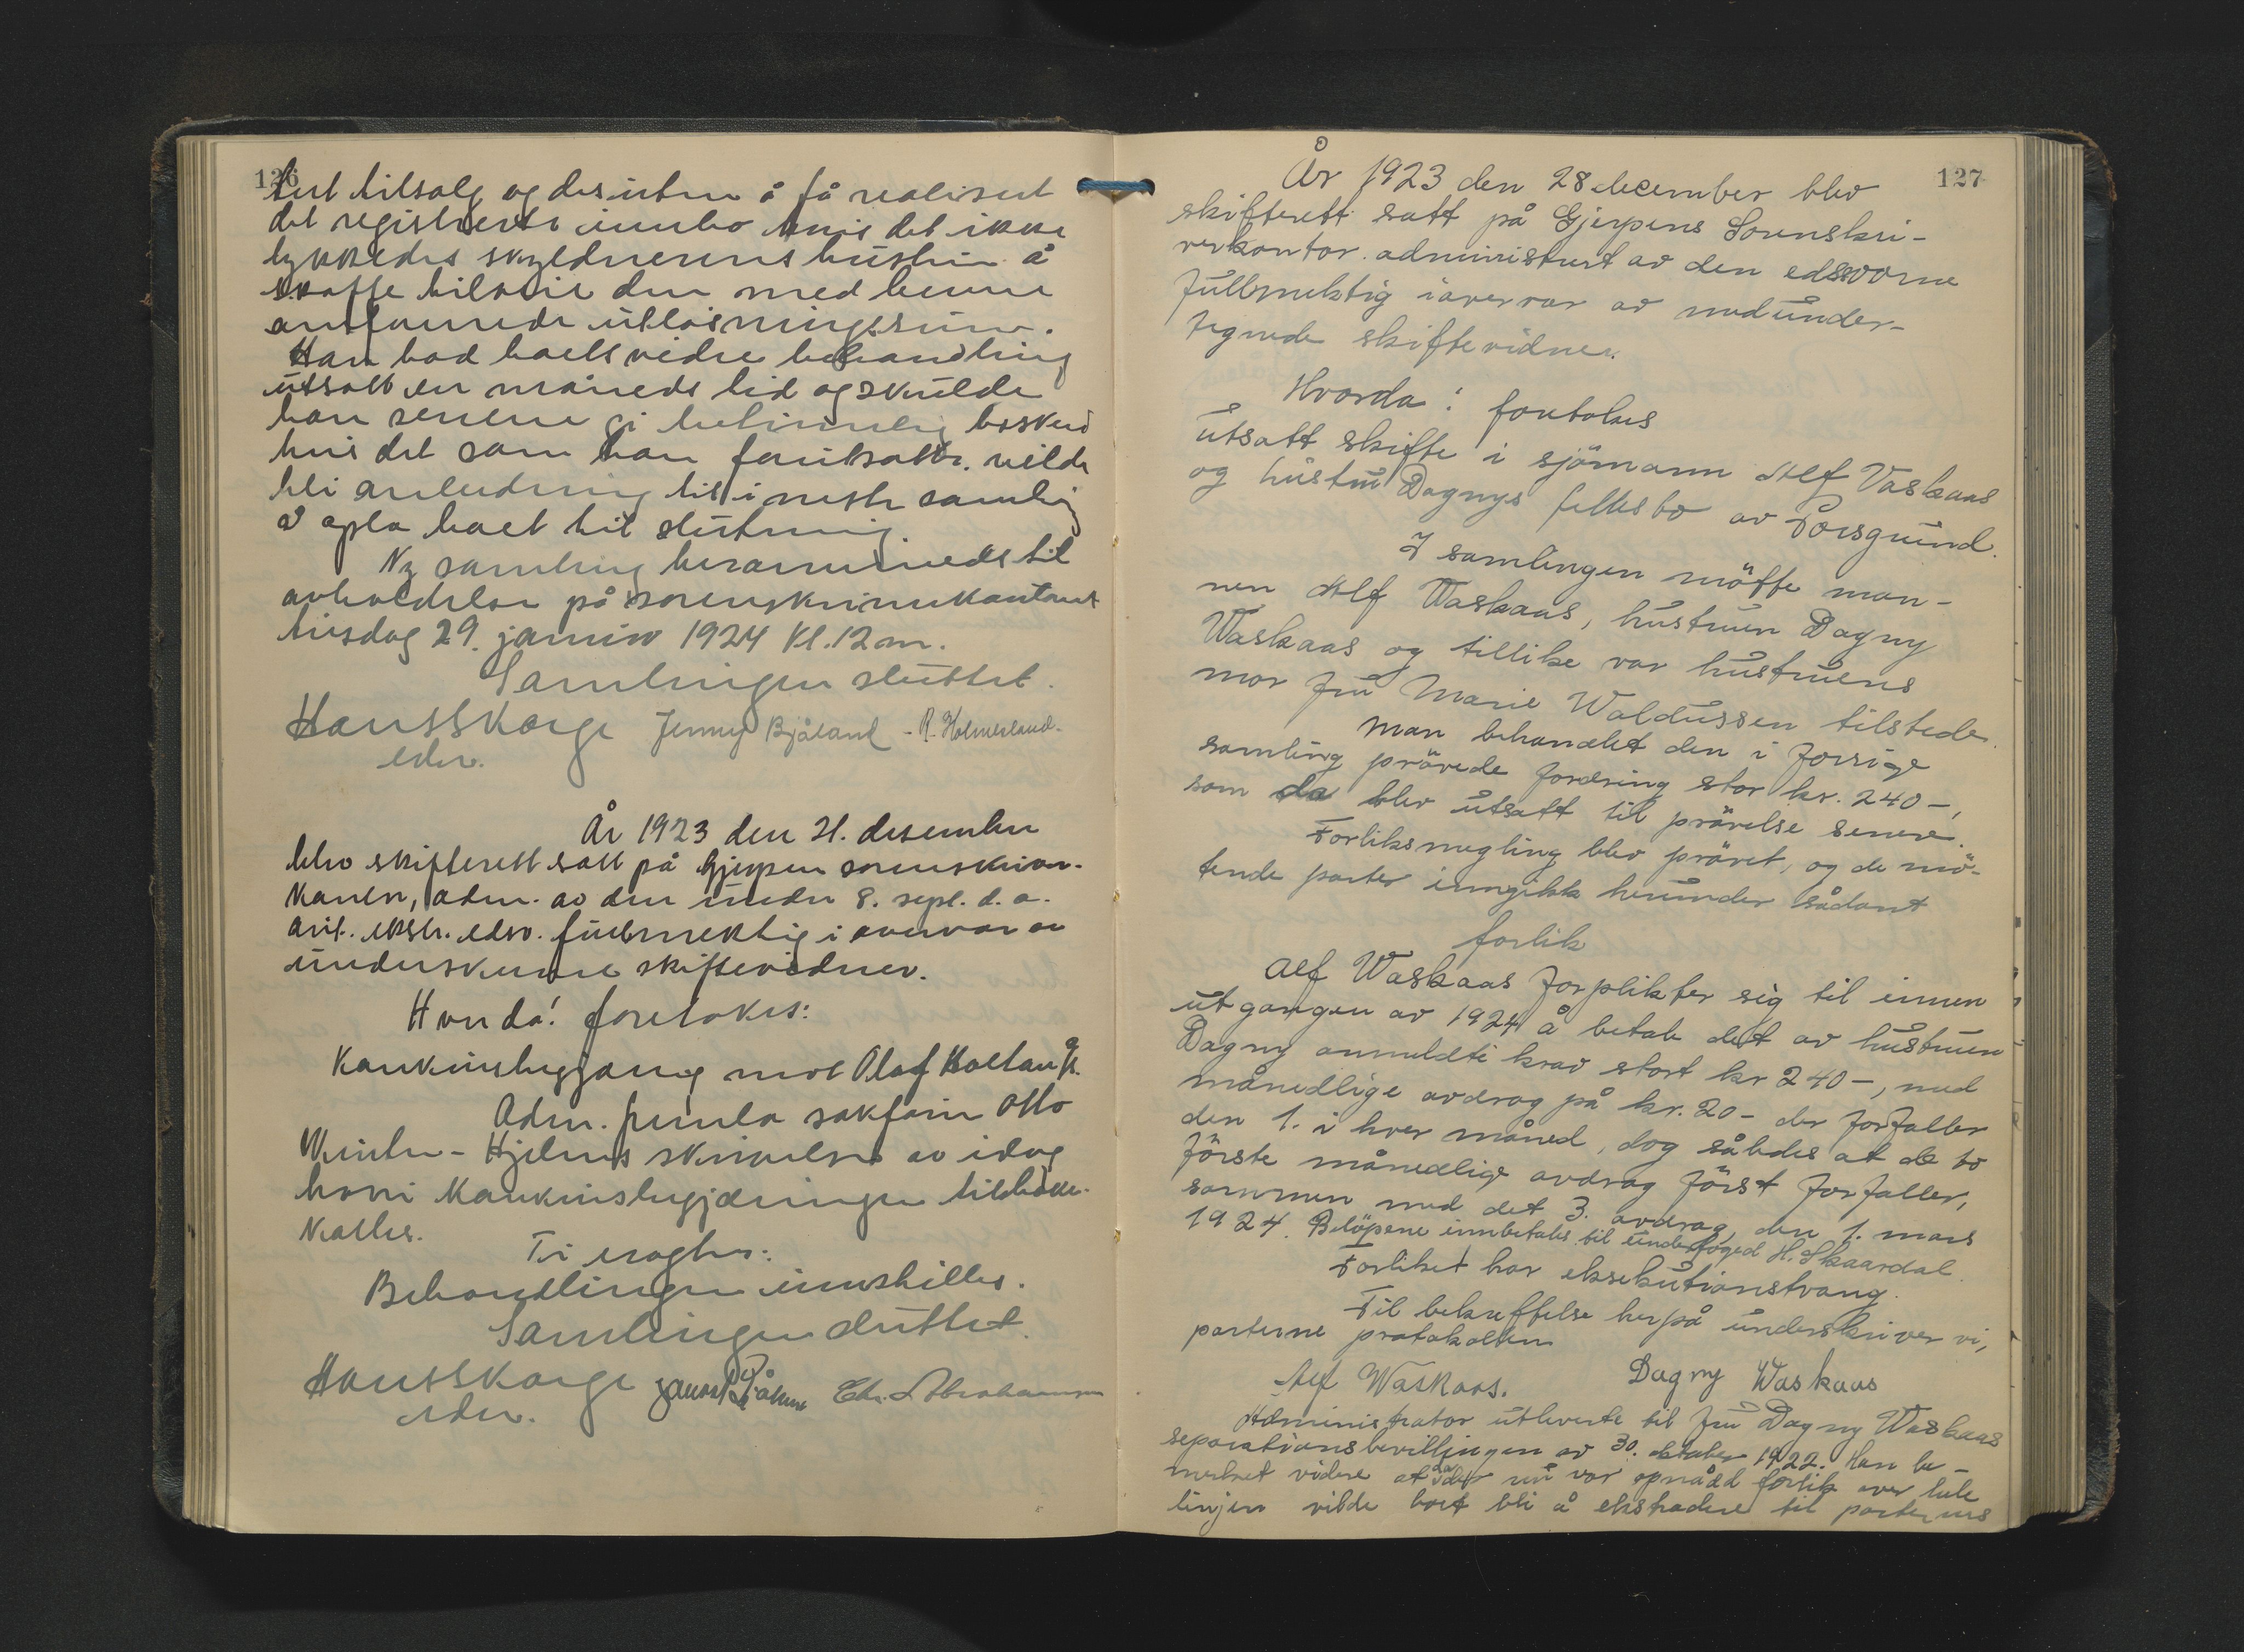 126
tert tilsalg og desuten å få realisert
det registrerte innbo hvis det ikke
lykkedes skyldnerens hustru å
skaffe tilveie den med henne
omforenede utløsningssum.
Han bad boets videre behandling
utsatt en måneds tid og skulde
han senere gi betimelig beskud
hvis det som han forutsatte vilde
bli anledning til i neste samling
å opta boet til slutning.
Ny samling berammedes til
avholdelse på sorenskriverkontoret
tirsdag 29. januar 1924 kl. 12 m.
Samlingen sluttet.
Hans Skorge Jenny Bjåland - R. Holmesland.
edsv.
År 1923 den 21. desember
blev skifterett satt på Gjerpen sorenskriver-
kontor, adm. av den under 8. sept. d. a.
ant. ekstr. edsv. fullmektig i overvær av
underskrevne skiftevidner.
Hvorda! foretokes:
Konkursbegjæring mot Olaf Holtan
Adm. fremla sakfører Otto
Winter-Hjelms skrivelse av idag
hvori konkursbegjæringen tilbake-
kalles.
Ti eragtes:
Behandlingen innstilles.
Samlingen sluttet.
Hans Skorge Bjåland Chr. Abrahamsen
edsv.
127
År 1923 den 28 december blev
skifterett satt på Gjerpens Sorenskri-
verkontor administrert av den edssvorne
fullmektig i overvær av medunder-
tegnede skiftevidner.
Hvorda: foretokes
utsatt skifte i sjömann Alf Vaskaas
og hustru Dagnys fellesbo av Porsgrund.
I samlingen mötte man-
nen Alf Waskaas, hustruen Dagny
Waskaas og tillike var hustruens
mor fru Marie Waldussen tilstede.
Man behandlet den i forrige
samling prövede fordring stor kr. 240-,
som da blev utsatt til prövelse senere.
Forliksmegling blev prövet, og de mö-
tende parter inngikk herunder sådant
forlik
Alf Waskaas forplikter sig til innen
utgangen av 1924 å betale det av hustruen
Dagny anmeldte krav stort kr 240-, med
månedlige avdrag på kr. 20- der forfaller
den 1. i hver måned, dog således at de to
förste månedlige avdrag först forfaller,
sammen med det 3. avdrag, den 1. mars
1924. Belöpene innbetales til underfoged H. Skaardal.
Forliket har eksekutionstvang.
Til bekreftelse herpå underskriver vi,
parterne protokollen
Alf Waskaas. Dagny Waskaas
Administrator utleverte til fru Dagny Waskaas
separationsbevillingen av 30. oktober 1922. Han be-
merket videre at da der nu var opnådd forlik over hele
linjen vilde boet bli å ekstradere til parternes